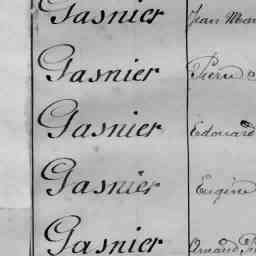 Gasnier Jean Mar
Gasnier Pierre
Gasnier Edouard
Gasnier Eugène
Gasnier Armand